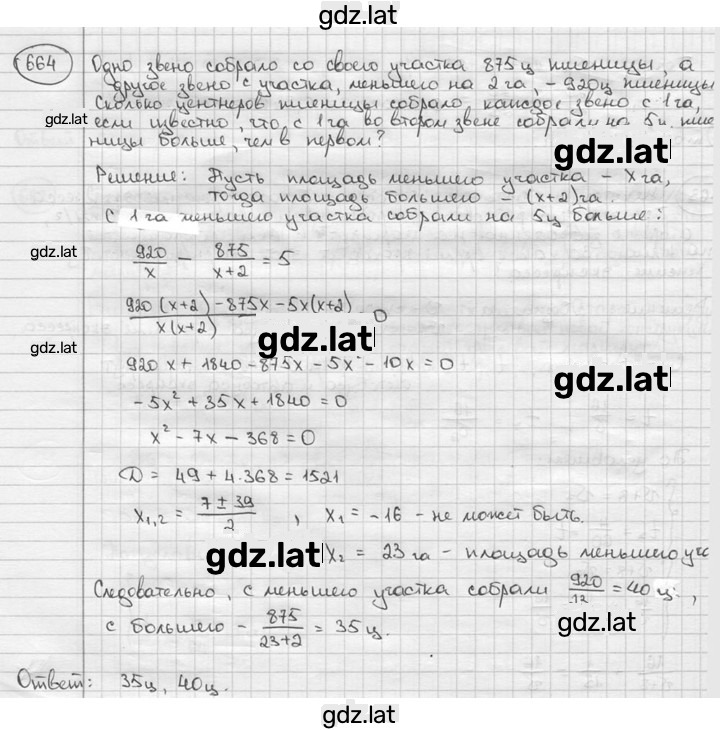 gdz.lat
664 Одно звено собрало со своего участка 875 ц пшеницы, а
другое звено с участка, меньшего на 2 га, – 920 ц пшеницы
Сколько центнеров пшеницы собрало каждое звено с 1 га,
gdz.lat если известно, что с 1 га во втором звене собрали на 5 ц пше
ницы больше, чем в первом?
gdz.lat
Решение: Пусть площадь меньшего участка – x га,
тогда площадь большего – (x+2) га.
С 1 га меньшего участка собрали на 5 ц больше:
gdz.lat 920/x – 875/(x+2) = 5
(920(x+2) – 875x – 5x(x+2))/(x(x+2)) 0
gdz.lat gdz.lat
920x + 1840 – 875x – 5x – 10x = 0
gdz.lat
-5x² + 35x + 1840 = 0
x² – 7x – 368 = 0
D = 49 + 4·368 = 1521
x₁,₂ = (7 ± 39)/2 , x₁ = -16 – не может быть.
gdz.lat x₂ = 23 га – площадь меньшего уч
Следовательно, с меньшего участка собрали 920/ = 40 ц,
с большего – 875/(23+2) = 35 ц. gdz.lat
Ответ: 35 ц, 40 ц.
gdz.lat